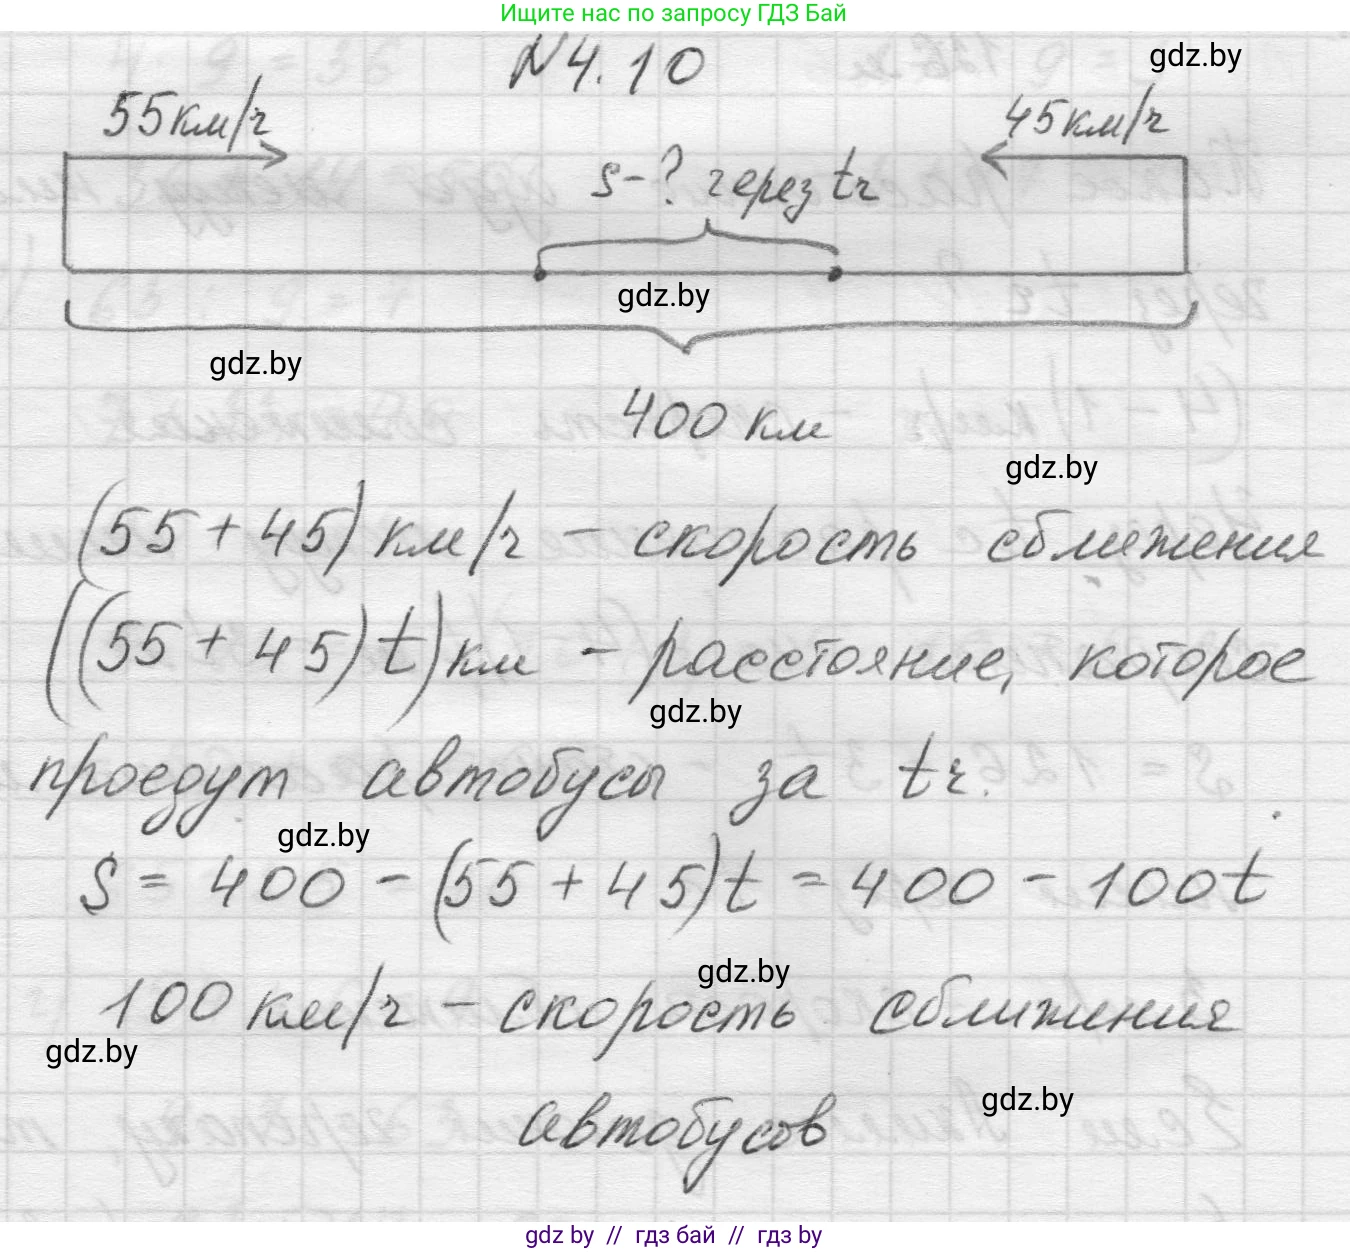 Ищите нас по запросу ГДЗ Бай
№4.10
gdz.by
55км/ч
45км/ч
s-? через tч
gdz.by
gdz.by
400 км
gdz.by
(55 + 45) км/ч - скорость сближения
((55 + 45) t) км - расстояние, которое
gdz.by
проедут автобусы за tч.
gdz.by
S = 400 - (55 + 45)t = 400 - 100t
gdz.by
100 км/ч - скорость сближения
gdz.by
gdz.by
автобусов
gdz by // гдз бай // гдз by